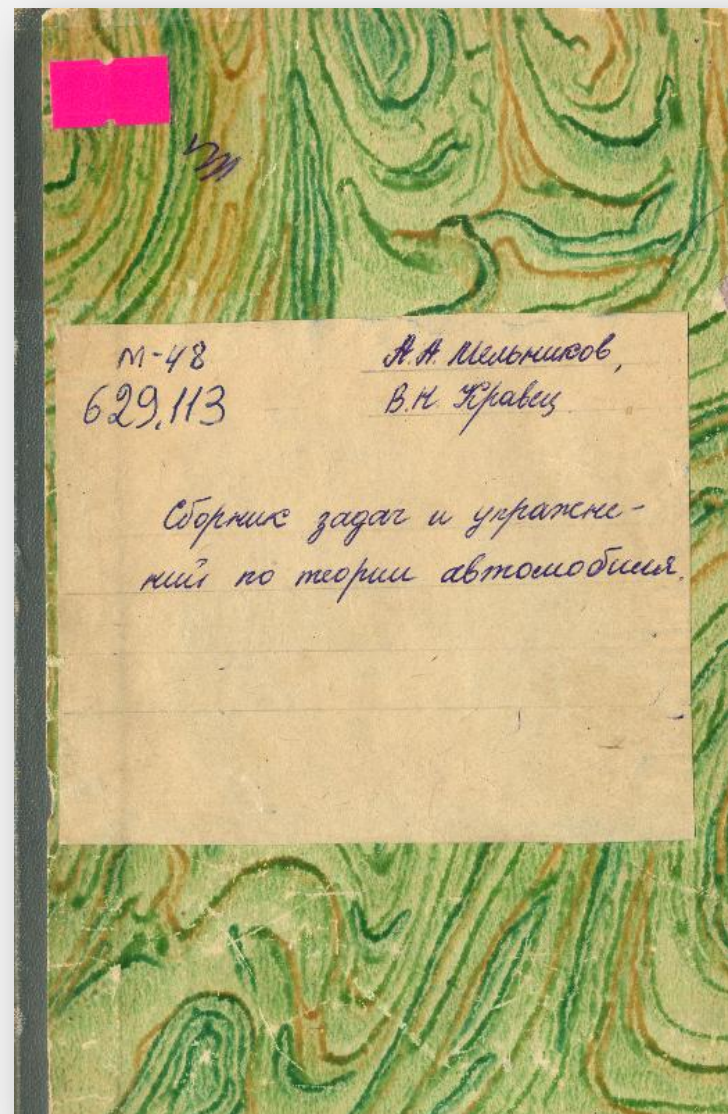 М-48
629.113
А.А. Мельников,
В.Н. Кравец
Сборник задач и упражне-
ний по теории автомобиля.